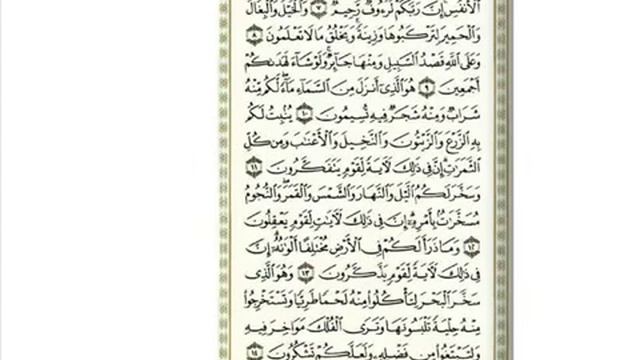 ٱلْأَنفُسِ إِنَّ رَبَّكُمْ لَرَءُوفٌ رَّحِيمٌ ٧ وَٱلْخَيْلَ وَٱلْبِغَالَ
وَٱلْحَمِيرَ لِتَرْكَبُوهَا وَزِينَةً وَيَخْلُقُ مَا لَا تَعْلَمُونَ ٨
وَعَلَى ٱللَّهِ قَصْدُ ٱلسَّبِيلِ وَمِنْهَا جَآئِرٌ وَلَوْ شَآءَ لَهَدَىٰكُمْ
أَجْمَعِينَ ٩ هُوَ ٱلَّذِىٓ أَنزَلَ مِنَ ٱلسَّمَآءِ مَآءً لَّكُم مِّنْهُ
شَرَابٌ وَمِنْهُ شَجَرٌ فِيهِ تُسِيمُونَ ١٠ يُنۢبِتُ لَكُم
بِهِ ٱلزَّرْعَ وَٱلزَّيْتُونَ وَٱلنَّخِيلَ وَٱلْأَعْنَٰبَ وَمِن كُلِّ
ٱلثَّمَرَٰتِ إِنَّ فِى ذَٰلِكَ لَءَايَةً لِّقَوْمٍ يَتَفَكَّرُونَ ١١
وَسَخَّرَ لَكُمُ ٱلَّيْلَ وَٱلنَّهَارَ وَٱلشَّمْسَ وَٱلْقَمَرَ وَٱلنُّجُومُ
مُسَخَّرَٰتٌۢ بِأَمْرِهِۦٓ إِنَّ فِى ذَٰلِكَ لَءَايَٰتٍ لِّقَوْمٍ يَعْقِلُونَ
١٢ وَمَا ذَرَأَ لَكُمْ فِى ٱلْأَرْضِ مُخْتَلِفًا أَلْوَٰنُهُۥٓ إِنَّ
فِى ذَٰلِكَ لَءَايَةً لِّقَوْمٍ يَذَّكَّرُونَ ١٣ وَهُوَ ٱلَّذِى
سَخَّرَ ٱلْبَحْرَ لِتَأْكُلُوا۟ مِنْهُ لَحْمًا طَرِيًّا وَتَسْتَخْرِجُوا۟
مِنْهُ حِلْيَةً تَلْبَسُونَهَا وَتَرَى ٱلْفُلْكَ مَوَاخِرَ فِيهِ
وَلِتَبْتَغُوا۟ مِن فَضْلِهِۦ وَلَعَلَّكُمْ تَشْكُرُونَ ١٤